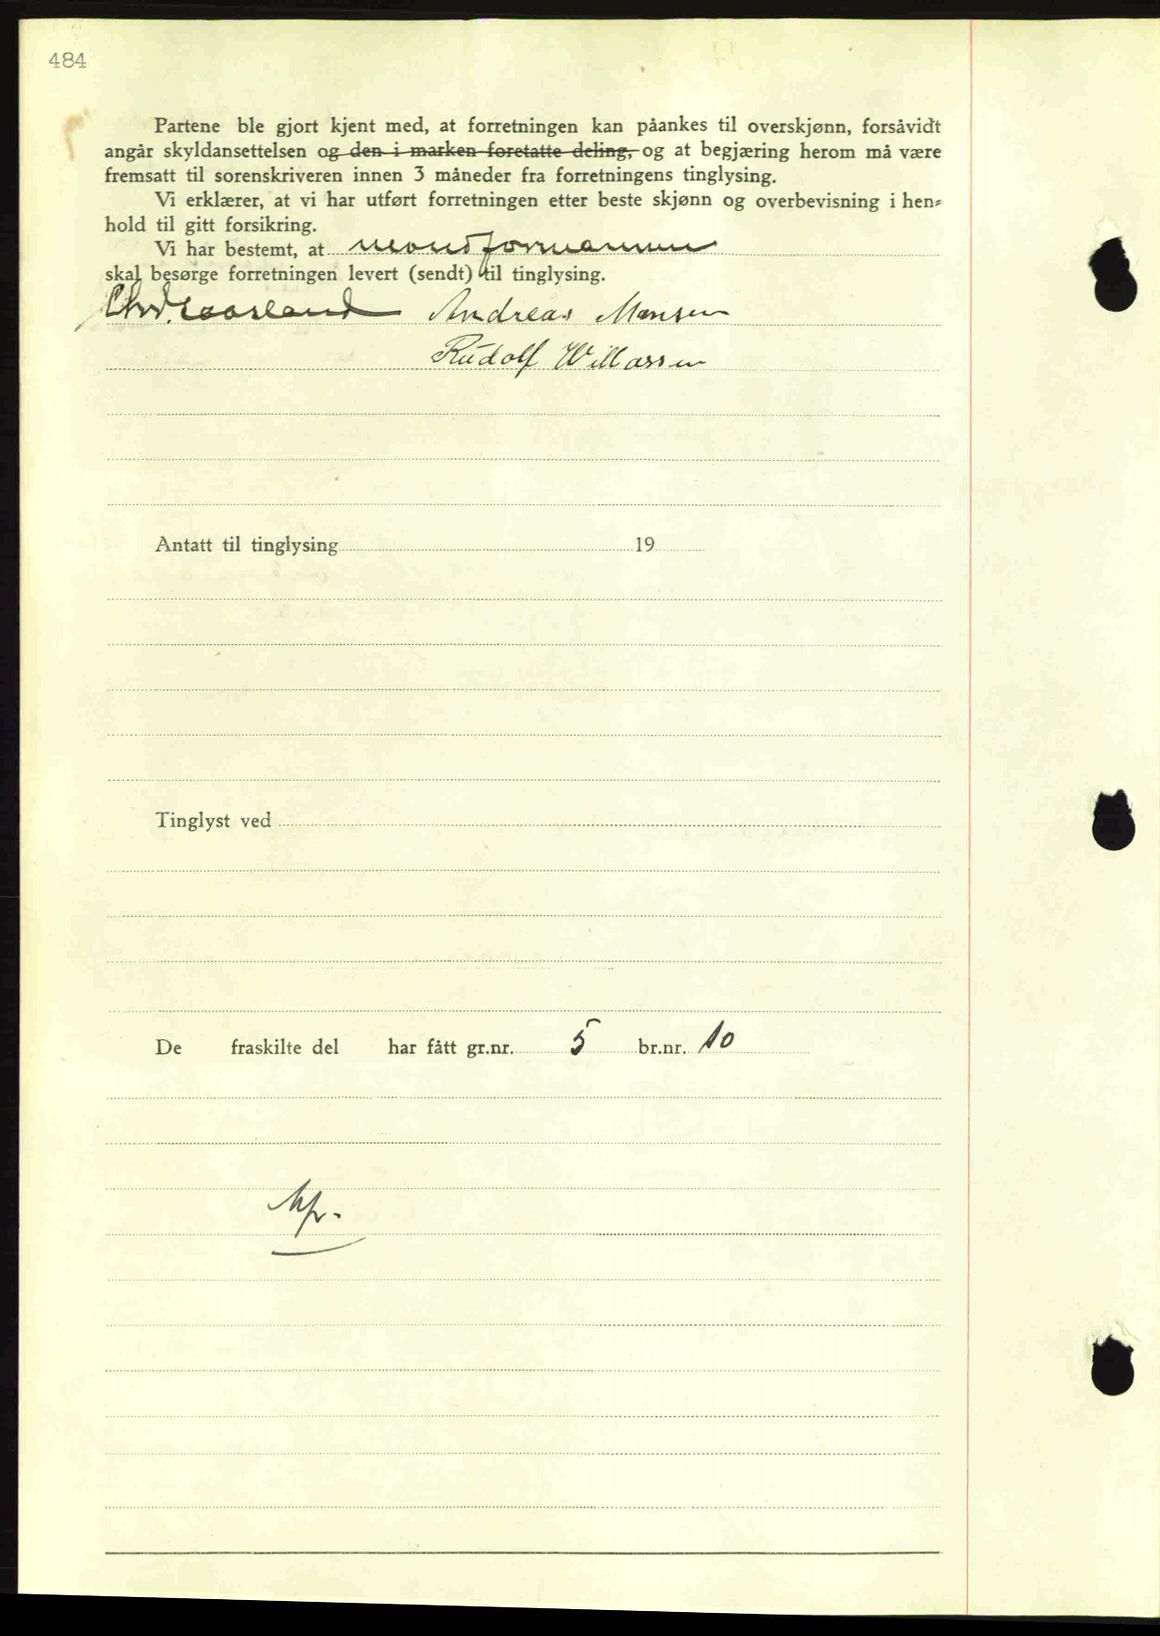 484
Partene ble gjort kjent med, at forretningen kan påankes til overskjønn, forsåvidt
angår skyldansettelsen og den i marken foretatte deling, og at begjæring herom må være
fremsatt til sorenskriveren innen 3 måneder fra forretningens tinglysing.
Vi erklærer, at vi har utført forretningen etter beste skjønn og overbevisning i hen-
hold til gitt forsikring.
Vi har bestemt, at
skal besørge forretningen levert (sendt) til tinglysing.
Andreas Monsen
Rudolf Willassen
Antatt til tinglysing 19
Tinglyst ved
De fraskilte del har fått gr.nr. 5 br.nr. 10